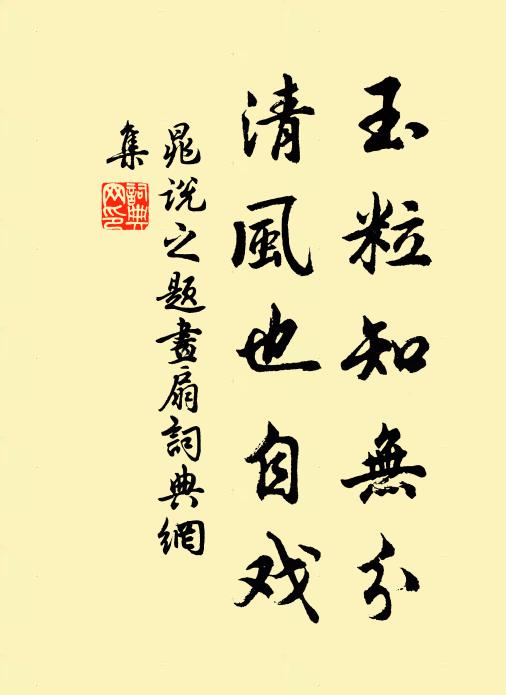 玉粒知無分
清風也自戏
晁说之题畫扇詞典網
集
詞典網印